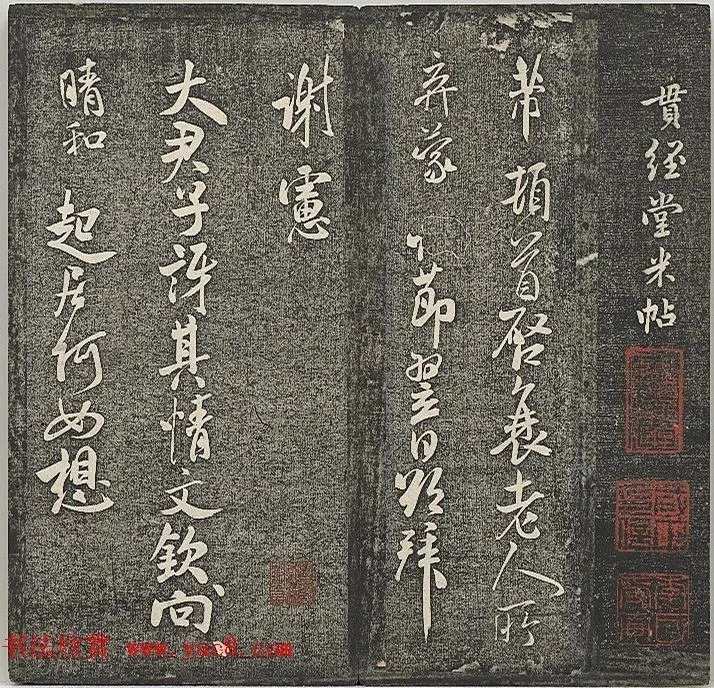 貫經堂米帖
芾頓首启衰老人所
弃蒙節翌日欲拜
謝憲
大君子訝其情文欽向
晴和起居何如想
书法欣赏 www.yac8.com